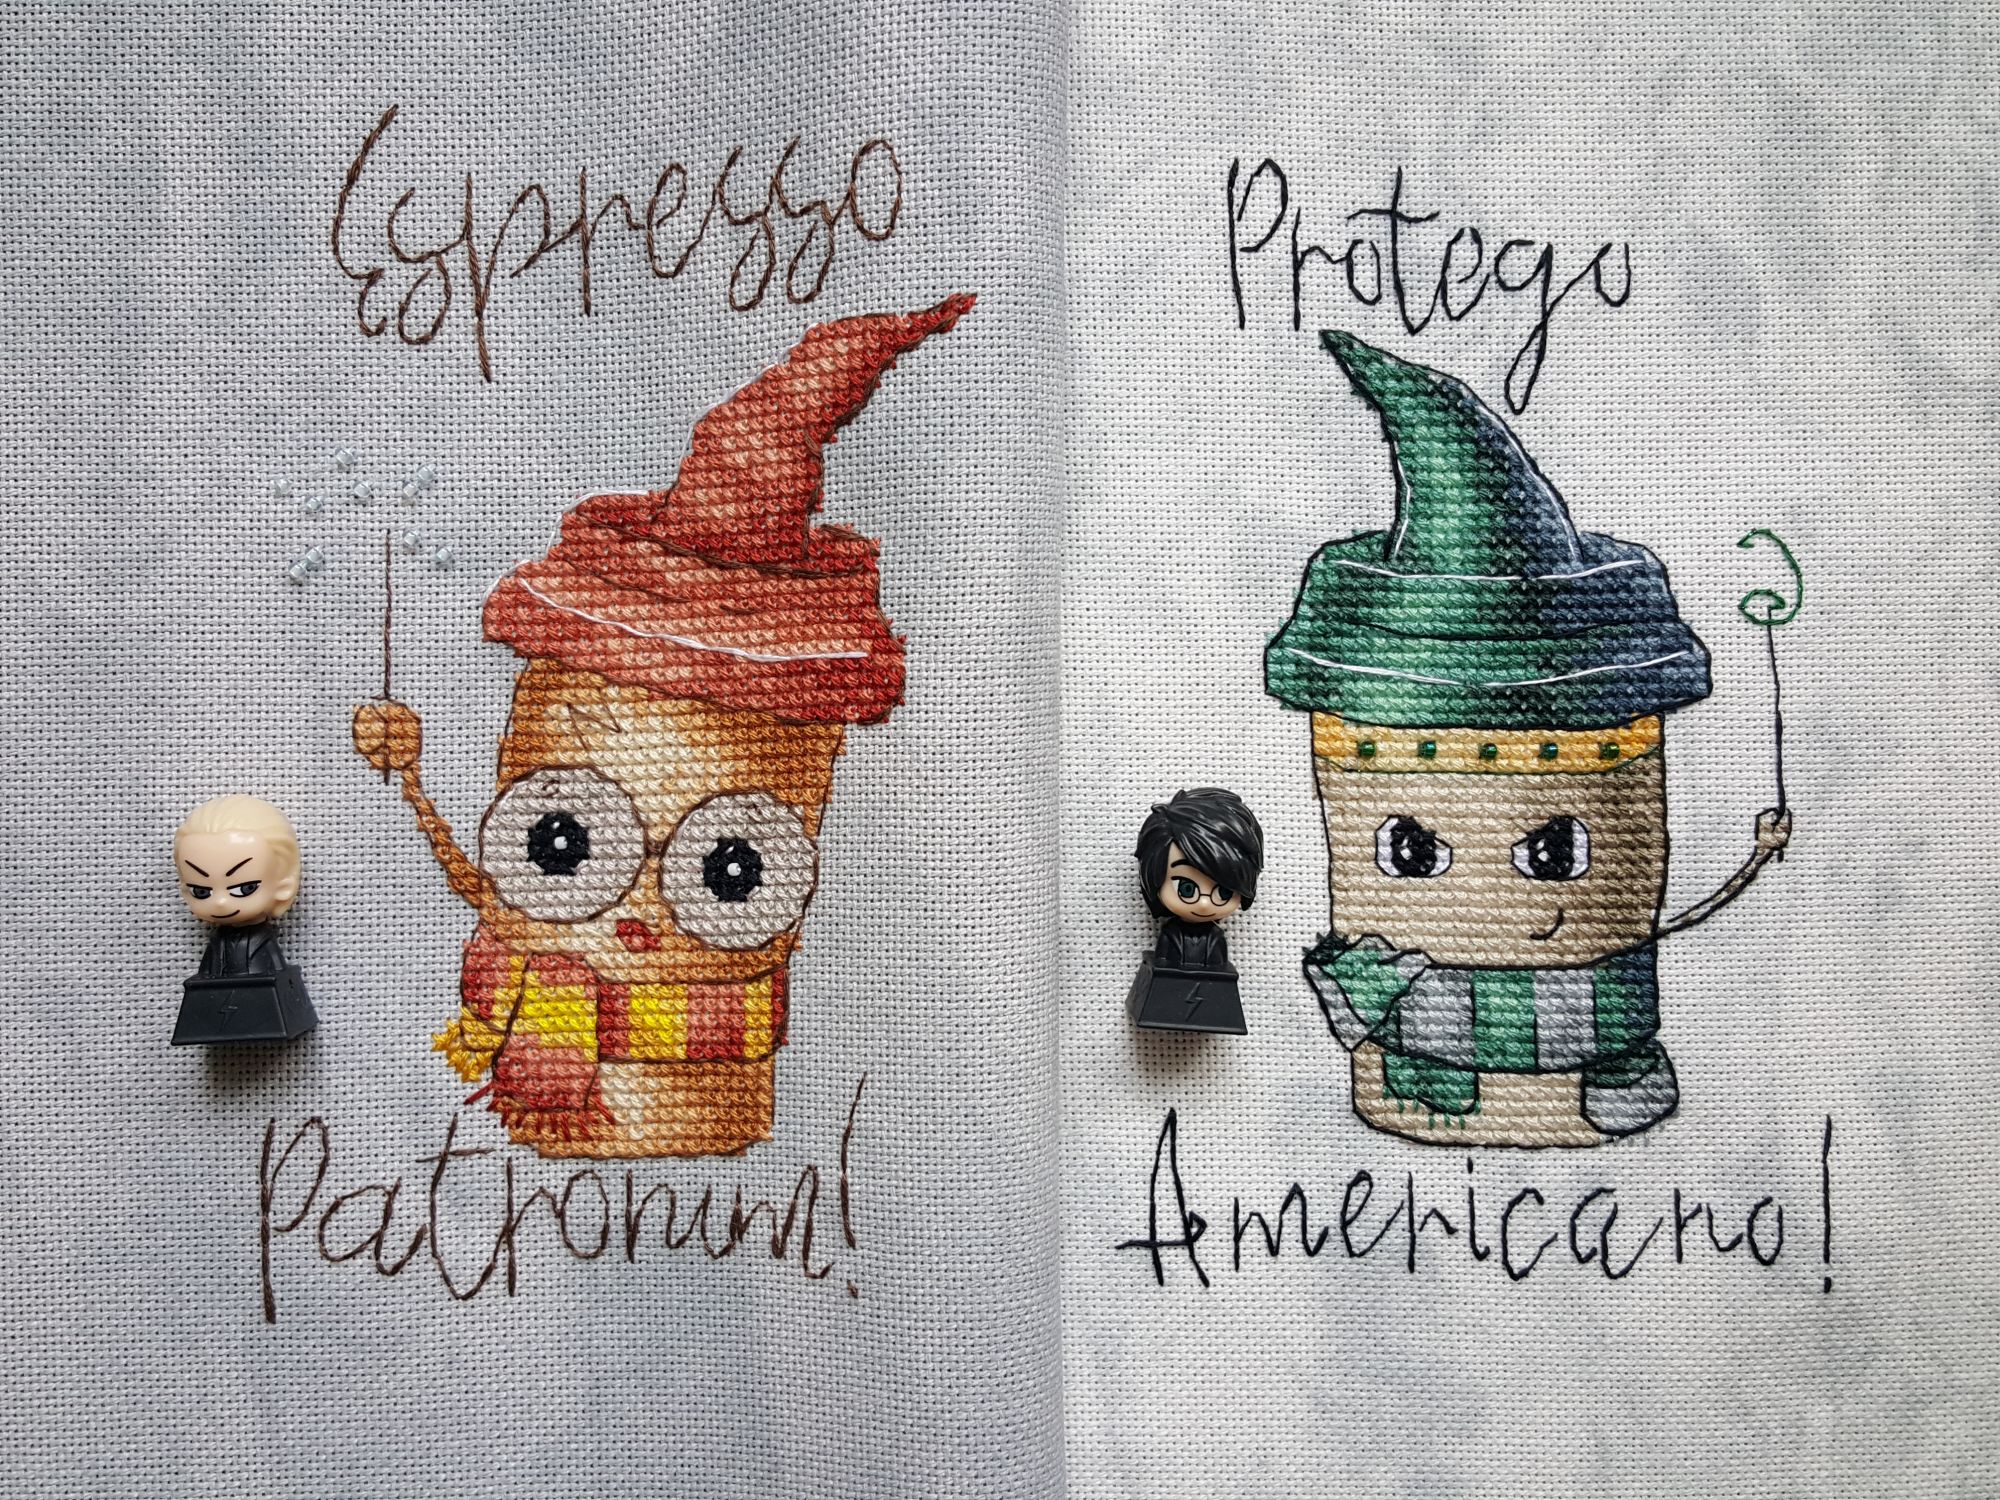 Espresso
Patronum!
Protego
Americano!